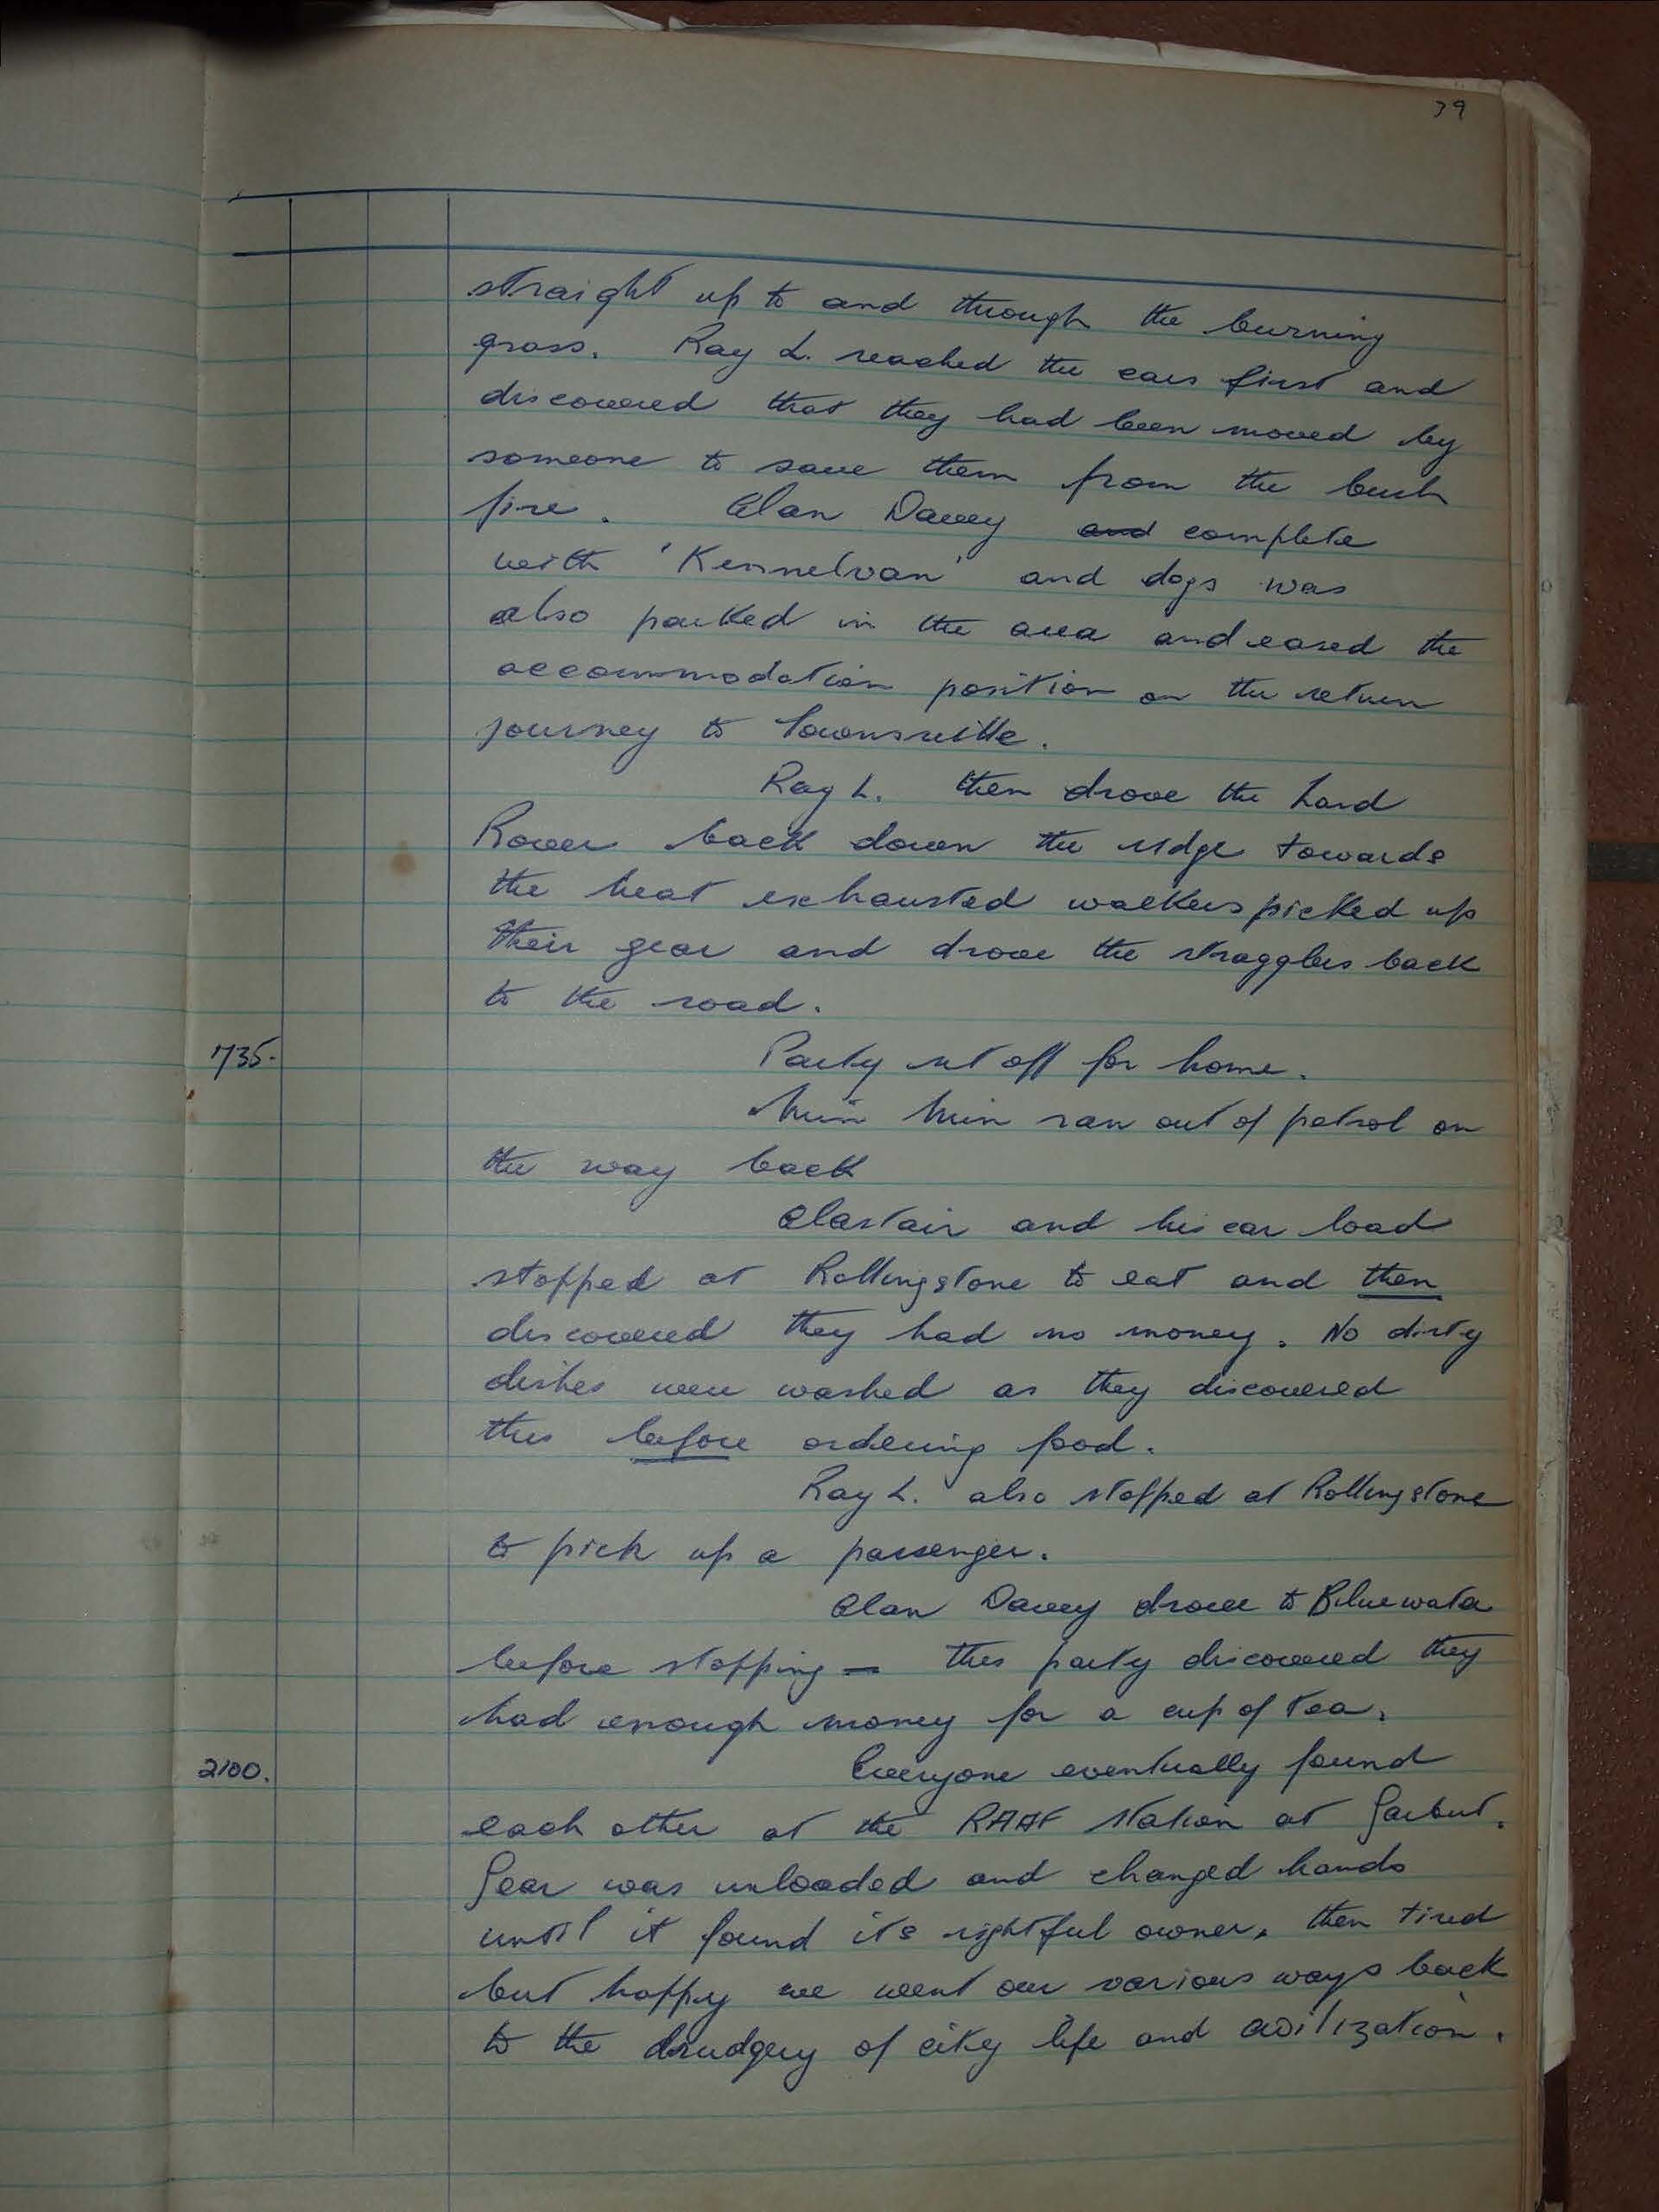 39
straight up to and through the burning
grass. Ray L. reached the cars first and
discovered that they had been moved by
someone to save them from the bush
fire. Alan Davey and complete
with 'Kennelvan' and dogs was
also parked in the area and eased the
accommodation position on the return
journey to Townsville.
Ray L. then drove the Land
Rover back down the ridge towards
the heat exhausted walkers picked up
their gear and drove the stragglers back
to the road.
735. Party set off for home.
Min Min ran out of petrol on
the way back
Alastair and his car load
stopped at Rollingstone to eat and then
discovered they had no money. No dirty
dishes were washed as they discovered
this before ordering food.
Ray L. also stopped at Rollingstone
to pick up a passenger.
Alan Davey drove to Bluewater
before stopping — this party discovered they
had enough money for a cup of tea.
2100. Everyone eventually found
each other at the RAAF station at Garbut.
Gear was unloaded and changed hands
until it found its rightful owner, then tired
but happy we went our various ways back
to the drudgery of city life and civilization.